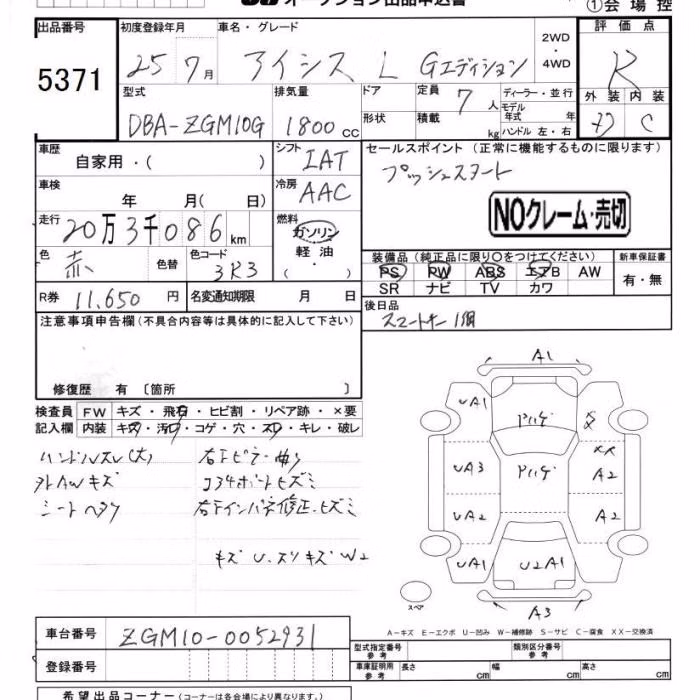 オークション出品申込書
①会場控
出品番号 初度登録年月 車名・グレード 評価点
5371 25 7月 アイシス L Gエディション 2WD・4WD R
型式 排気量 ドア 定員 ディーラー・並行 外装 内装
DBA-ZGM10G 1800cc 形状 7人 積載 kg モデル年式 年 ハンドル 左・右 C
車歴 自家用・( ) シフト IAT セールスポイント (正常に機能するものに限ります)
車検 年 月( 日) 冷房 AAC プッシュスタート
NOクレーム・売切
走行 20万3千086km 燃料 ガソリン 軽油 ・( )
色 赤 色替 色コード 3R3 装備品 (純正品に限り○をつけてください) 新車保証書
PS PW ABS エアB AW 有・無
SR ナビ TV カワ
R券 11,650円 名変通知期限 月 日 後日品
スマートキー1個
注意事項申告欄(不具合内容等は具体的に記入して下さい)
修復歴 有 〔箇所 〕
検査員 FW キズ・飛石・ヒビ割・リペア跡・×要
記入欄 内装 キズ・汚れ・コゲ・穴・スレ・キレ・破レ
ハンドルスレ(大) 右Fピラー曲り
外AWキズ コアサポートヒズミ
シートヘタリ 右Fインパネ修正、ヒズミ
キズ U、スリキズ W2
A1
UA1 XX
UA3 XX A2
UA2 A2
UA1 U2A1
A3
スペア
A-キズ E-エクボ U-凹み W-補修跡 S-サビ C-腐食 XX-交換済
車台番号 ZGM10-0052931
型式指定番号 参考 類別区分番号 参考
登録番号 車庫証明用 参考 長さ cm 幅 cm 高さ cm
希望出品コーナー(コーナーは各会場により異なります。)